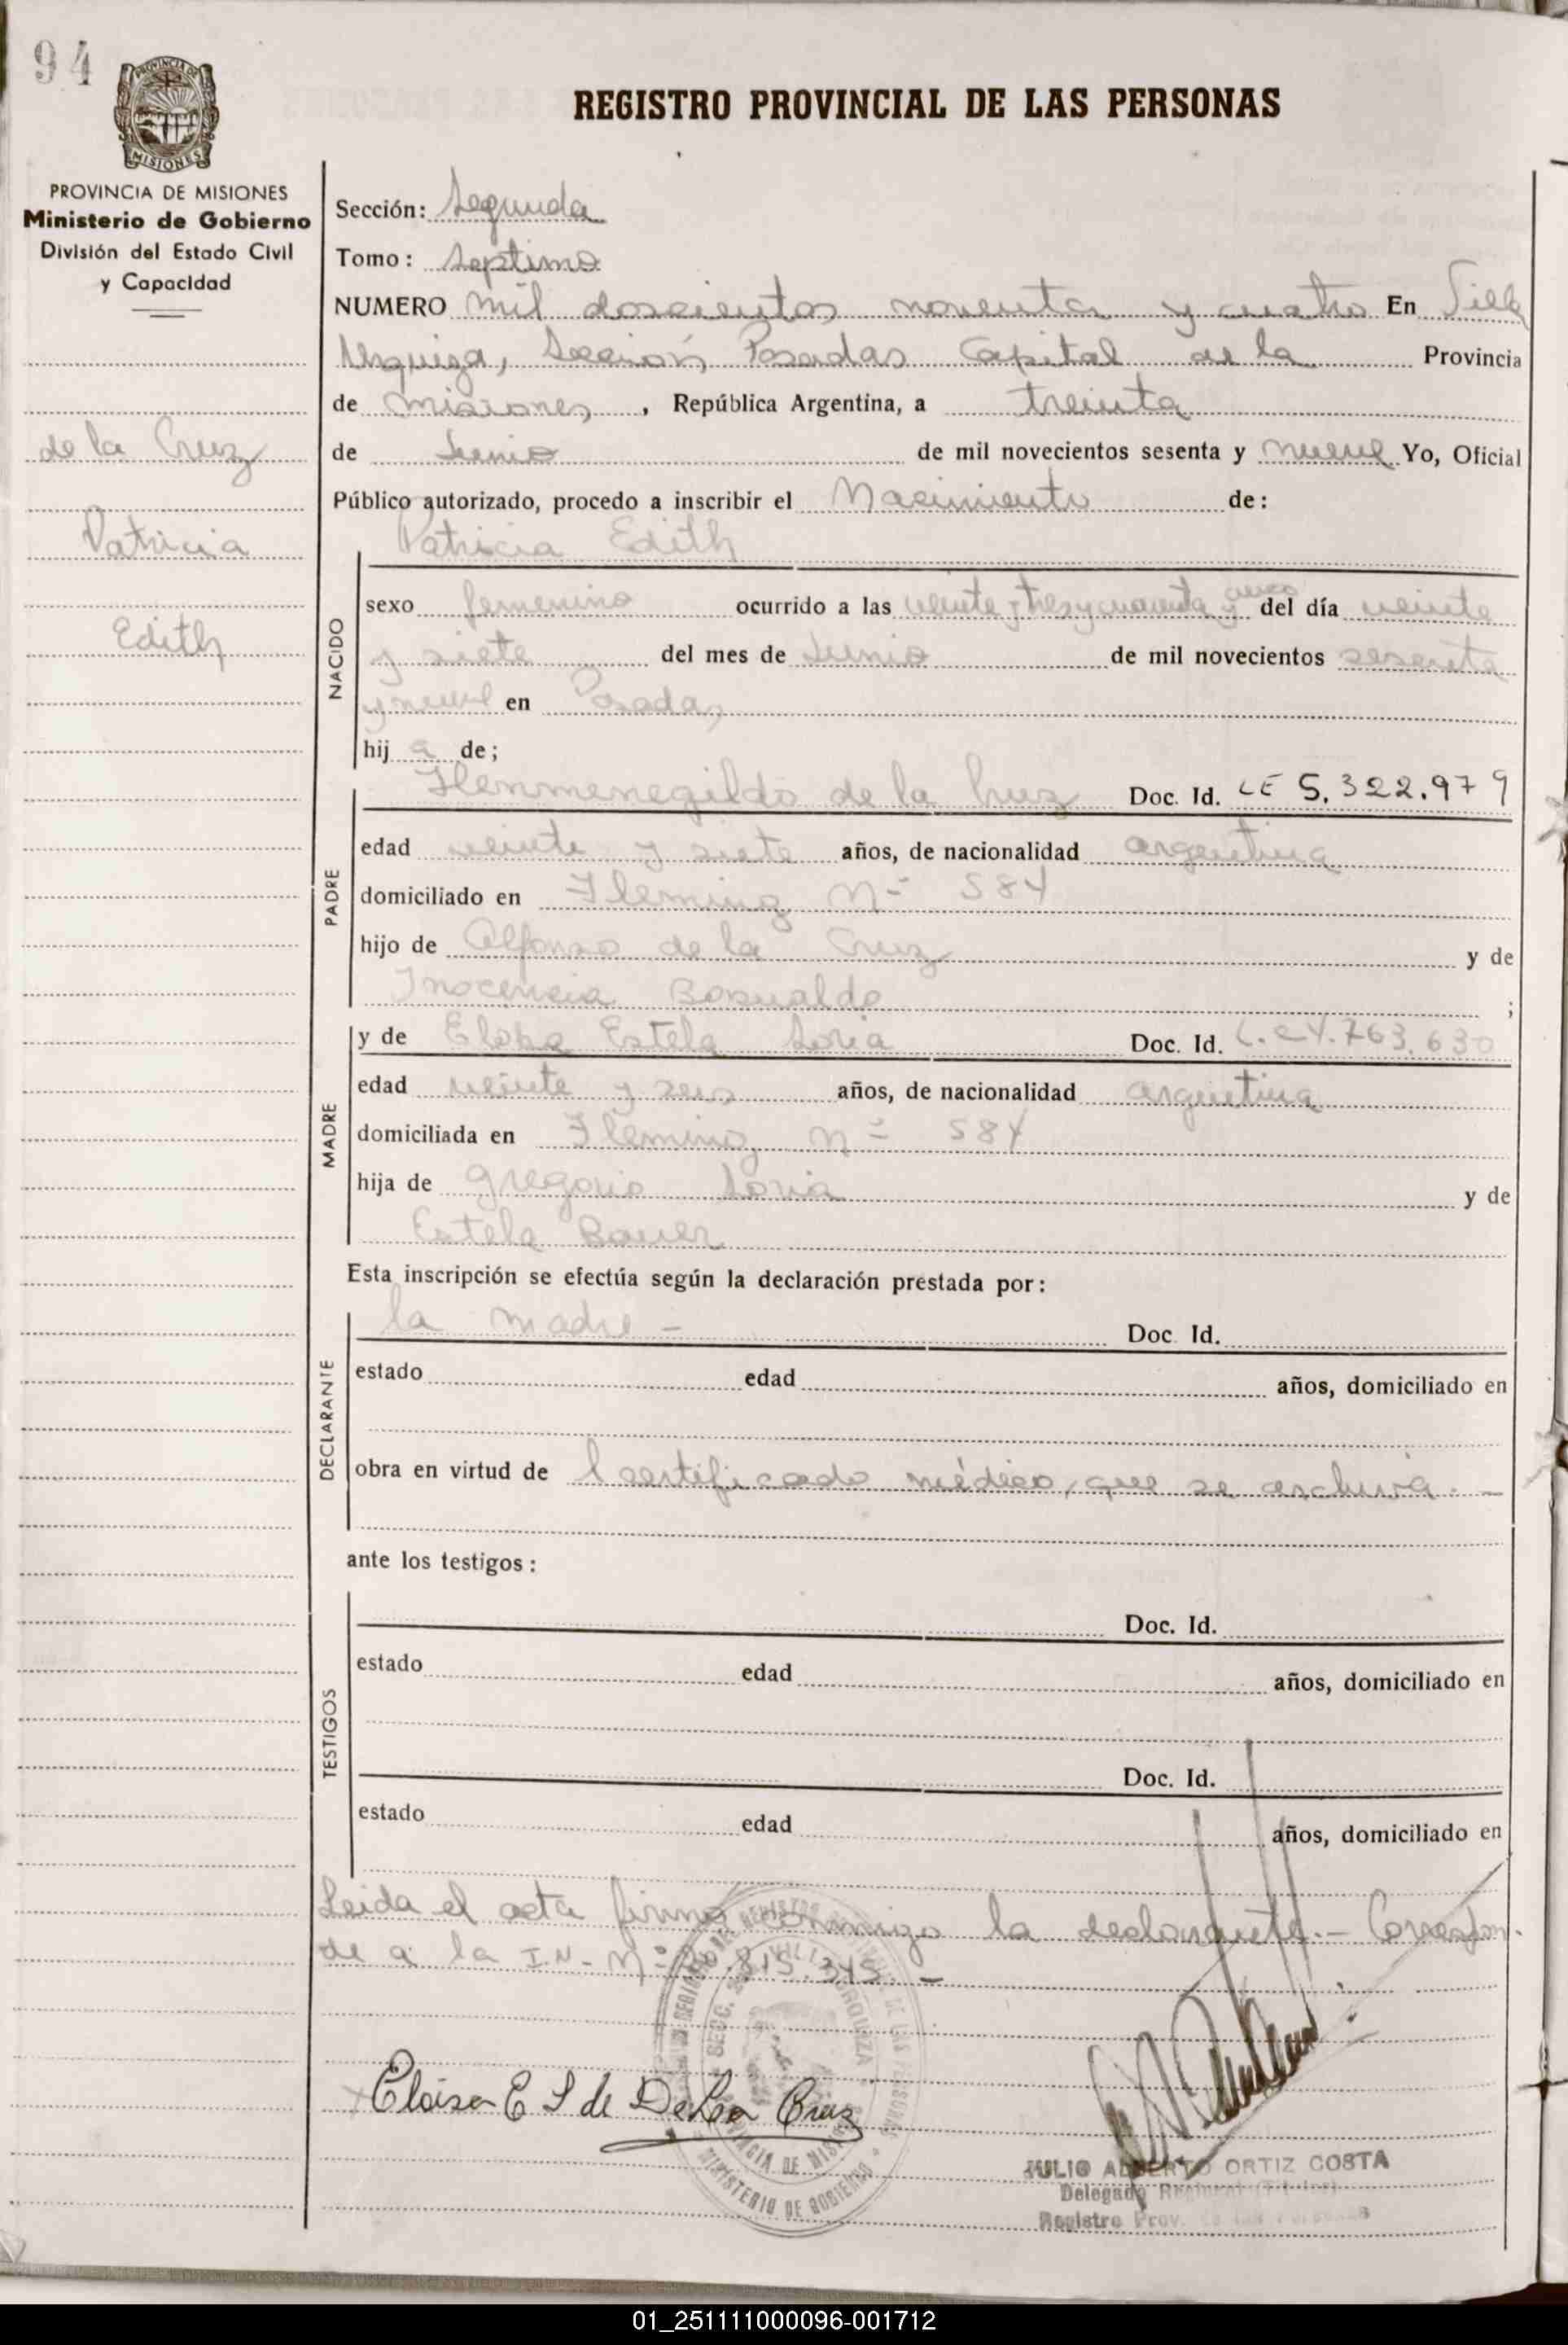 94
PROVINCIA DE
MISIONES
PROVINCIA DE MISIONES
Ministerio de Gobierno
División del Estado Civil
y Capacidad
de la Cruz
Patricia
Edith
REGISTRO PROVINCIAL DE LAS PERSONAS
Sección: Segunda
Tomo: Septimo
NUMERO mil doscientos noventa y cuatro En Villa
Urquiza, Sección, Posadas Capital de la Provincia
de Misiones, República Argentina, a treinta
de Junio de mil novecientos sesenta y nueve Yo, Oficial
Público autorizado, procedo a inscribir el Nacimiento de:
Patricia Edith
NACIDO
sexo femenino ocurrido a las veinte y tres y cuarenta y cinco del día veinte
y siete del mes de Junio de mil novecientos sesenta
y nueve en Posadas
hij a de;
PADRE
Hermenegildo de la Cruz Doc. Id. LE 5.322.979
edad veinte y siete años, de nacionalidad argentina
domiciliado en Fleming Nº 584
hijo de Alfonso de la Cruz y de
Inocencia ;
MADRE
y de Estela Soria Doc. Id. L.C 4.763.630
edad veinte y seis años, de nacionalidad argentina
domiciliada en Fleming Nº 584
hija de Gregorio Soria y de
Estela Bauer
Esta inscripción se efectúa según la declaración prestada por:
DECLARANTE
la madre - Doc. Id.
estado edad años, domiciliado en
obra en virtud de l certificado médico, que se archiva. -
ante los testigos:
TESTIGOS
Doc. Id.
estado edad años, domiciliado en
Doc. Id.
estado edad años, domiciliado en
Leida el acta firma conmigo la declarante.- Correspon-
de a la I.N- Nº 20.815.345. -
Eloisa E S de De La Cruz
SECC. VILLA URQUIZA
PROVINCIA DE MISIONES
MINISTERIO DE GOBIERNO
JULIO ALBERTO ORTIZ COSTA
Delegado Regional (Titular)
Registro Prov. de las Personas
01_251111000096-001712